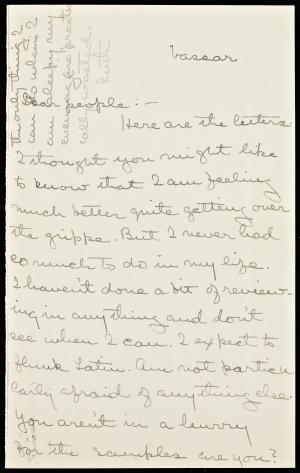 Vassar
Dear people: —
Here are the letters
I thought you might like
to know that I am feeling
much better quite getting over
the grippe. But I never had
so much to do in my life.
I haven't done a bit of review-
ing in anything and don't
see when I can. I expect to
flunk Latin. Am not particu
larly afraid of anything else.
You aren't in a hurry
for the samples are you?
the only thing I
can do when I
am sleepy my
evenings are practi
cally wasted
Ruth.